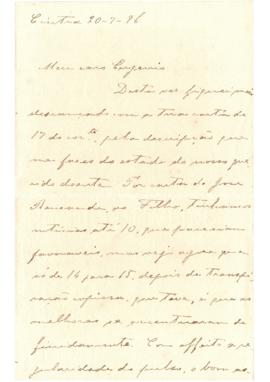 Cintra 20-7-96
Meu caro Eugenio
Desta vez fiquei mais
descançado com a tua carta de
17 do corte, pela descripção que
me fazes do estado do nosso que-
rido doente. Por carta do José
Rezende, o Filho, tinhamos
noticias até 10, que pareciam
favoraveis, mas vejo agora que
só de 14 para 15, depois da transpi-
ração copiosa que teve, é que as
melhoras se accentuaram de-
finidamente. Com effeito a re-
gularidade do pulso, o bom as-